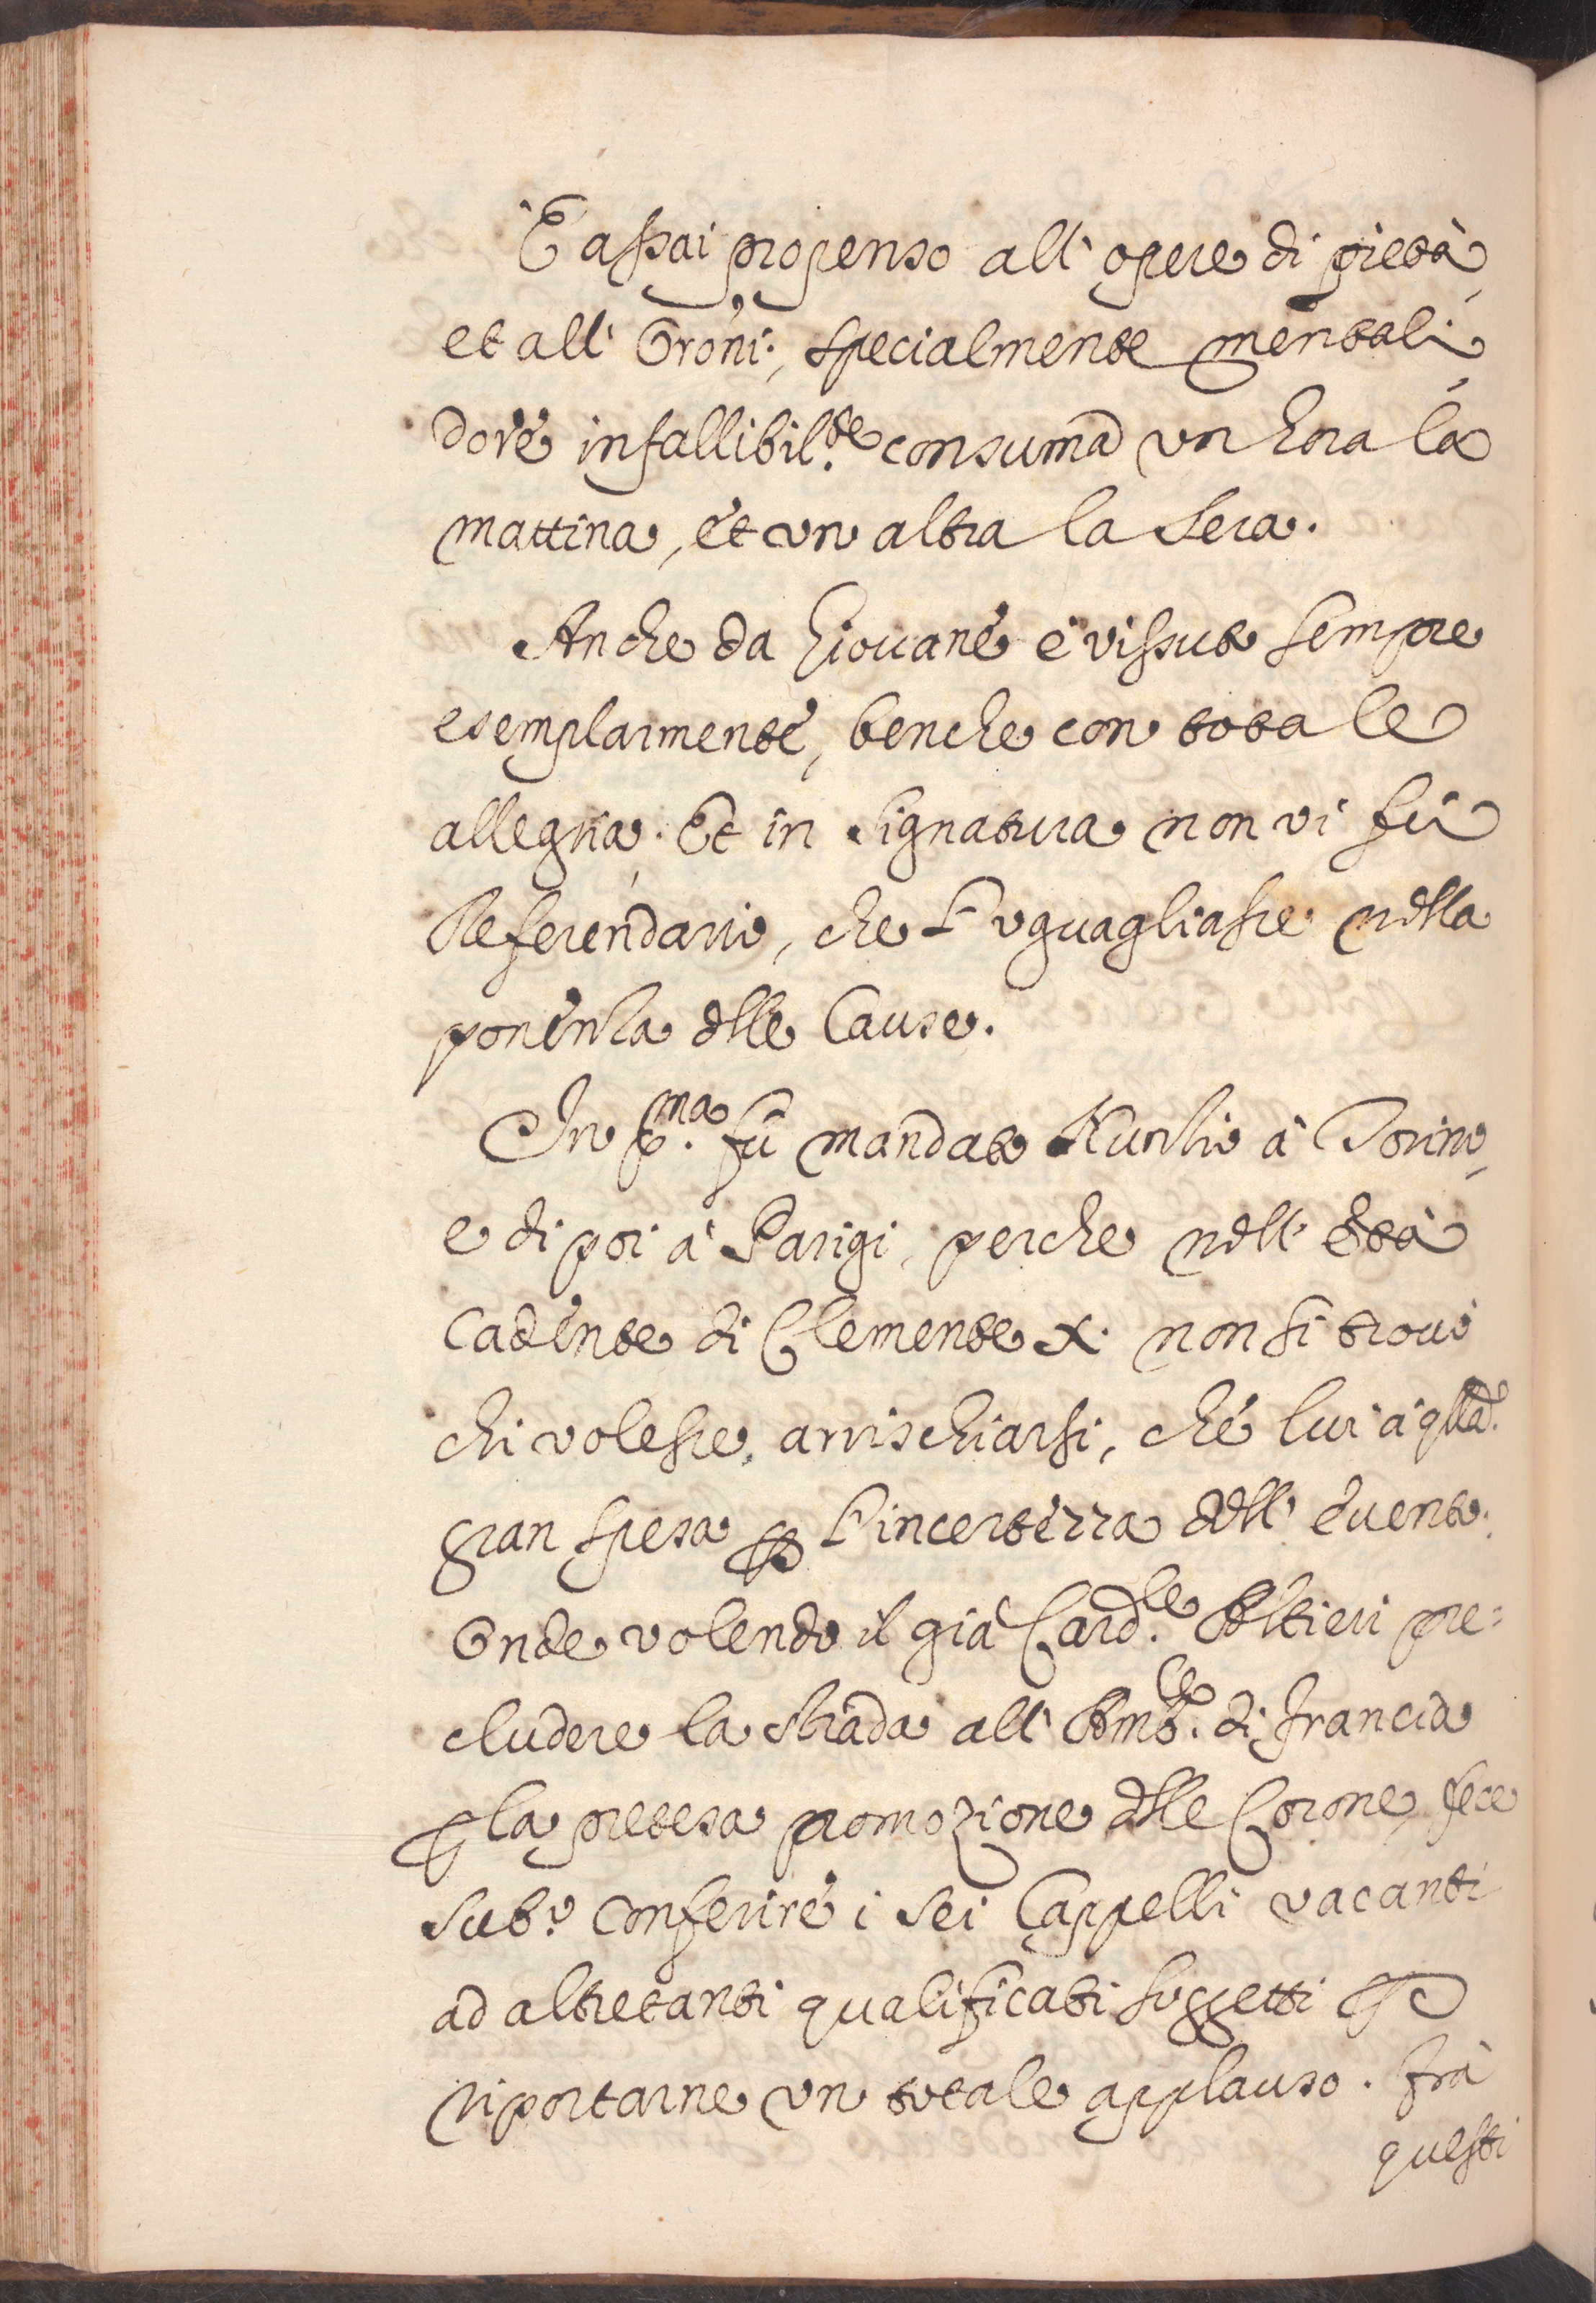 È assai propenso all' opere di pietà,
et all' Orõni, specialmente mentali,
dove infallibil.te consuma un hora la
mattina, et un altra la Sera.
Anche da Giovane è vissuto sempre
esemplarmente, benche con totale
allegria. Et in Signatura non vi fù
Referendario, che l'uguagliasse nella
ponenza dlle Cause.
In p.ma fù mandato Nunzio à Torino,
e di poi à Parigi, perche nell' Età
Cadente di Clemente X. non si trovò
chi volesse arrischiarsi, che lui à qlla
gran spesa p l'incertezza dell' evento.
Onde volendo il già Card.le Altieri pre=
cludere la strada all' Amb.re di Francia
p la pretesa promozione dlle Corone, fece
sub.o conferire i sei Cappelli vacanti
ad altretanti qualificati soggetti p
riportarne un totale applauso. Frà
questi